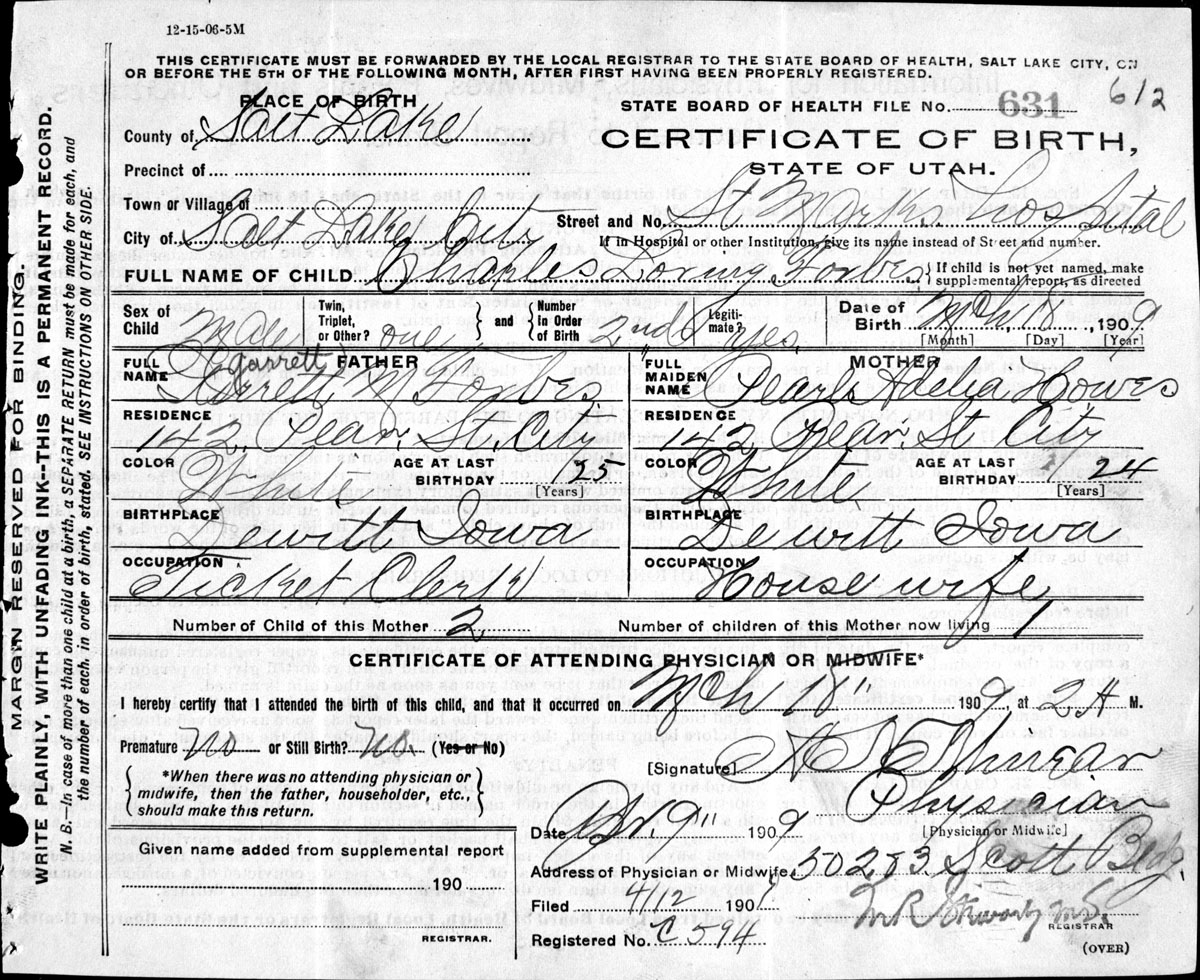 12-15-06-5M
THIS CERTIFICATE MUST BE FORWARDED BY THE LOCAL REGISTRAR TO THE STATE BOARD OF HEALTH, SALT LAKE CITY, ON
OR BEFORE THE 5TH OF THE FOLLOWING MONTH, AFTER FIRST HAVING BEEN PROPERLY REGISTERED.
612
PLACE OF BIRTH
STATE BOARD OF HEALTH FILE No. 631
County of Salt Lake
CERTIFICATE OF BIRTH,
STATE OF UTAH.
Precinct of
Town or Village of
Street and No. St Marks Hospital
City of Salt Lake City
If in Hospital or other Institution, give its name instead of Street and number.
FULL NAME OF CHILD Charles Loring Forbes
If child is not yet named, make
supplemental report, as directed
Sex of Child Male
Twin, Triplet, or Other? one
and
Number in Order of Birth 2nd
Legiti- mate? yes
Date of Birth Mch 18, 1909
[Month] [Day] [Year]
FATHER
FULL NAME Garrett M Forbes
RESIDENCE
142 Pear St. City
COLOR White
AGE AT LAST BIRTHDAY 25
[Years]
BIRTHPLACE
Dewitt Iowa
OCCUPATION
Ticket Clerk
MOTHER
FULL MAIDEN NAME Pearl Adelia Howes
RESIDENCE
142 Pear St City
COLOR White
AGE AT LAST BIRTHDAY 24
[Years]
BIRTHPLACE
Dewitt Iowa
OCCUPATION
House wife
Number of Child of this Mother 2
Number of children of this Mother now living 1
CERTIFICATE OF ATTENDING PHYSICIAN OR MIDWIFE*
I hereby certify that I attended the birth of this child, and that it occurred on Mch 18" 1909, at 2 A M.
Premature no or Still Birth? no. (Yes or No)
*When there was no attending physician or
midwife, then the father, householder, etc.,
should make this return.
[Signature]
Physician
[Physician or Midwife]
Date 9" 1909
Address of Physician or Midwife Scott Bldg.
Given name added from supplemental report
190
REGISTRAR.
Filed 4/12 190
REGISTRAR
Registered No. C 594
(OVER)
MARGIN RESERVED FOR BINDING.
WRITE PLAINLY, WITH UNFADING INK-THIS IS A PERMANENT RECORD.
N. B.—In case of more than one child at a birth, a SEPARATE RETURN must be made for each, and
the number of each, in order of birth, stated. SEE INSTRUCTIONS ON OTHER SIDE.